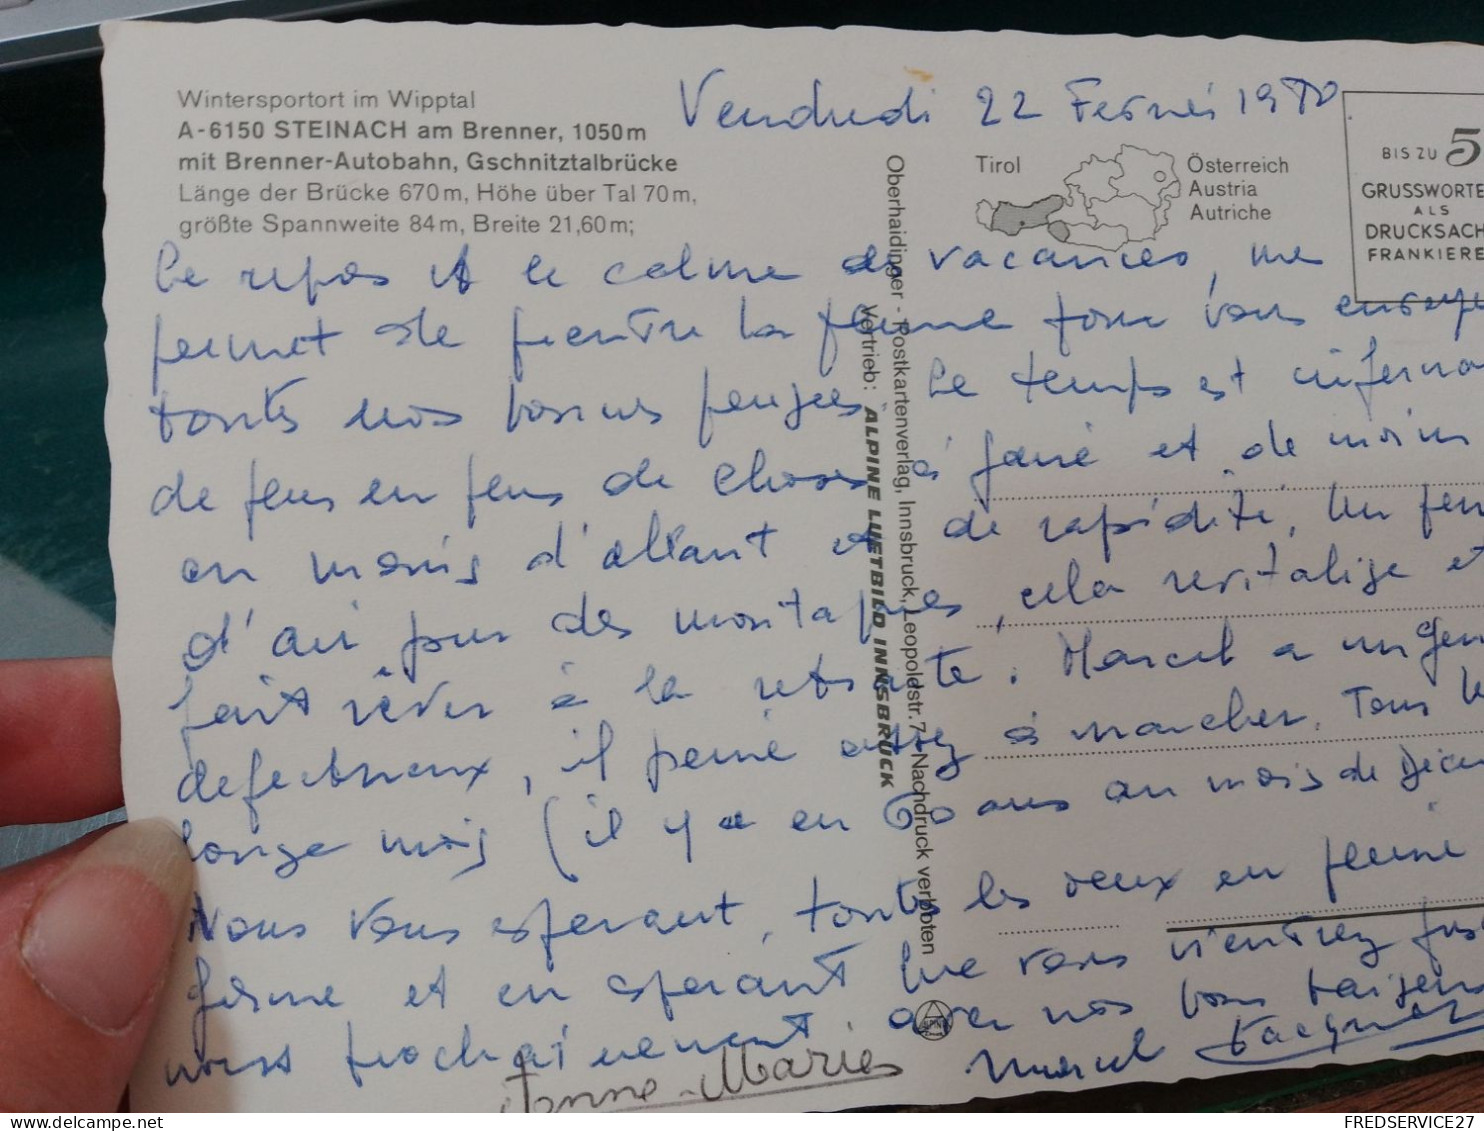 Wintersportort im Wipptal
A-6150 STEINACH am Brenner, 1050m
mit Brenner-Autobahn, Gschnitztalbrücke
Länge der Brücke 670m, Höhe über Tal 70m,
größte Spannweite 84m, Breite 21,60m;
Vendredi 22 Février 1980
Tirol
Österreich
Austria
Autriche
BIS ZU 5
GRUSSWORTE
ALS
DRUCKSACH
FRANKIERE
Oberhaidinger - Postkartenverlag, Innsbruck, Leopoldstr. 7 - Nachdruck verboten
Vertrieb: ALPINE LUFTBILD INNSBRUCK
Le repos et le calme des vacances, me
permet de prendre la plume pour vous envoye
toutes nos bonnes pensées. Le temps est inferna
de plus en plus de choses à faire et de moins
en moins d'allant et de rapidité. Un peu
d'air pur des montagnes, cela revitalise et
fait rêver à la retraite. Marcel a un genou
defectueux, il peine assez à marcher. Tous le
longe mois (il y a eu 60 ans au mois de Décem
Nous vous esperant, toutes les deux en pleine
forme et en esperant que vous viendrez
nous prochainement. avec nos bons baisers
Marcel Jacqueline
Anne-Marie
FREDSERVICE27